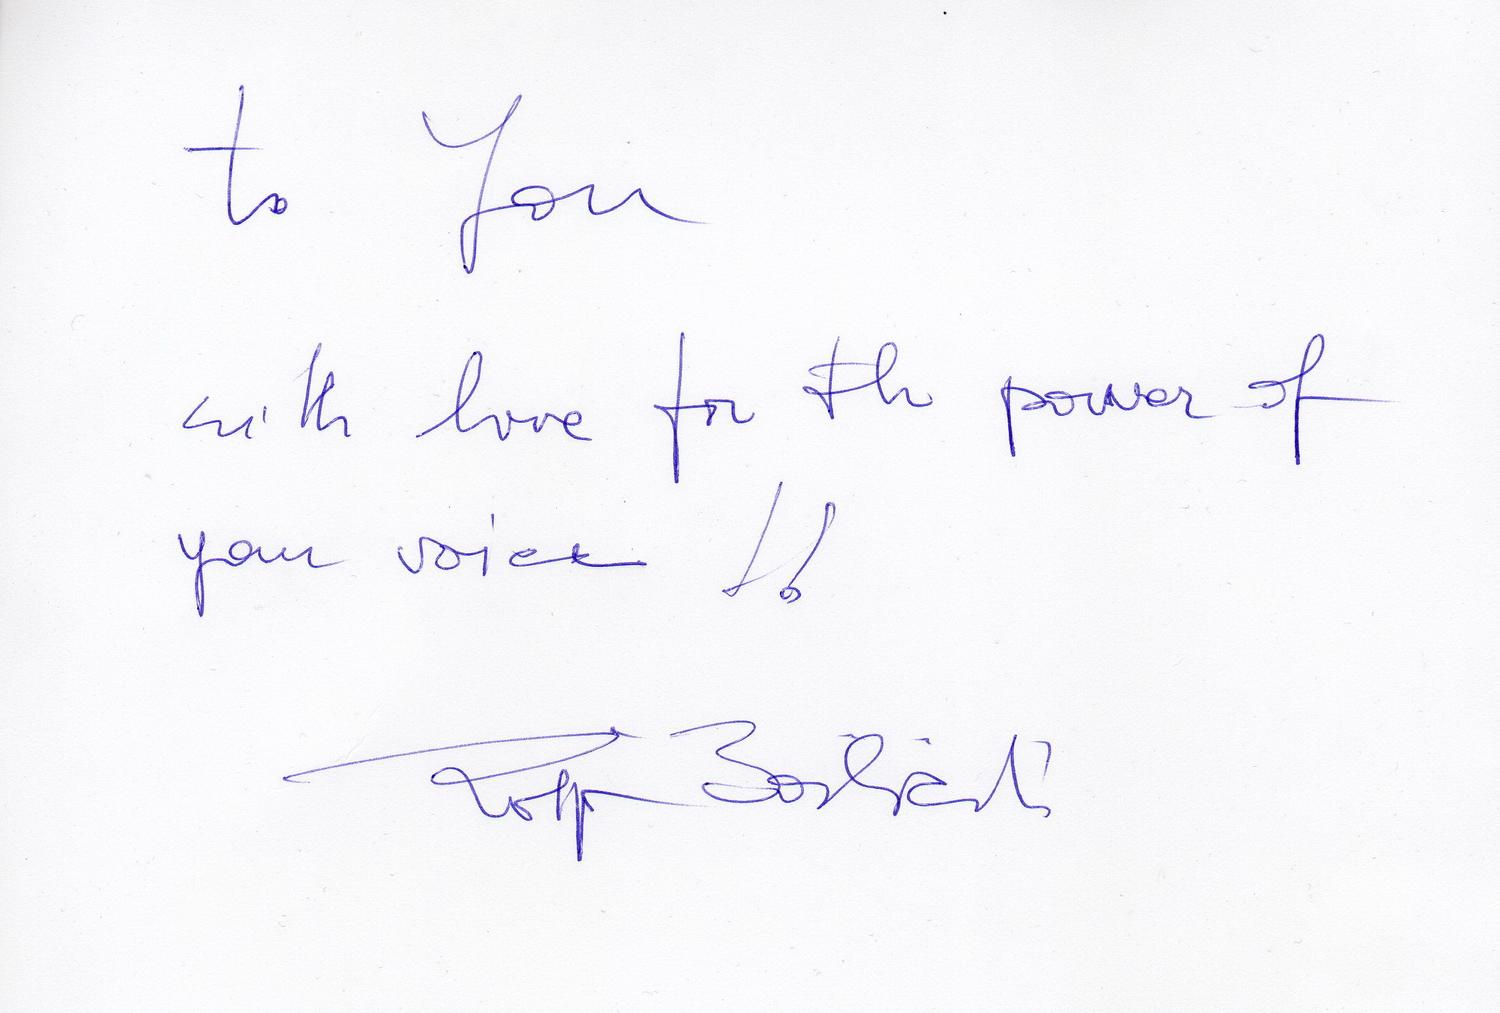 to You
with love for the power of
your voice !!
Rolf